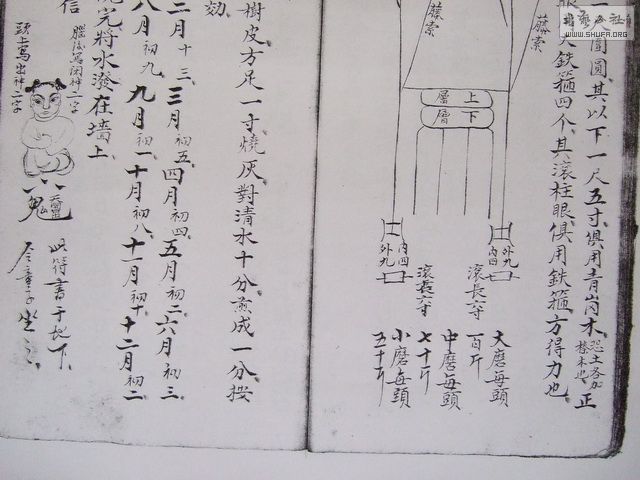 一人閣圓其以下一尺五寸俱用青崗木
恐土各加
樁木也
正
大鉄箍四个其滾柱眼俱用鉄箍方得力也
藤索
藤索
上層
下層
外九
內四
外九
內四
滾長六寸
滾長六寸
大磨每頭
一百斤
中磨每頭
七十斤
小磨每頭
五十斤
樹皮方足一寸燒灰對清水十分煎成一分按
効
二月十三三月初五四月初四五月初二六月初三
八月初九九月初一十月初八十一月初十十二月初二
完將水潑在墙上
信
腦後寫閉神二字
頭上寫出神二字
鬼
此符書于地下
令童子坐之
WWW.SHUFA.ORG